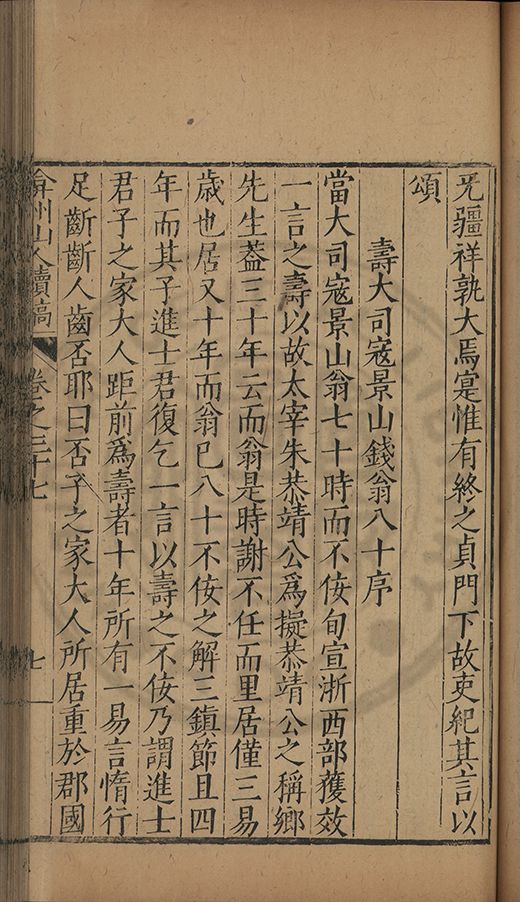 旡疆祥孰大焉寔惟有終之貞門下故吏紀其言以
頌
壽大司寇景山錢翁八十序
當大司寇景山翁七十時而不侫旬宣浙西部獲效
一言之壽以故太宰朱恭靖公爲擬恭靖公之稱鄉
先生葢三十年云而翁是時謝不任而里居僅三易
歲也居又十年而翁巳八十不侫之解三鎮節且四
年而其子進士君復乞一言以壽之不侫乃謂進士
君子之家大人距前爲壽者十年所有一易言惰行
足齗齗人齒否耶曰否子之家大人所居重於郡國
弇州山人續稿 卷之三十七 七